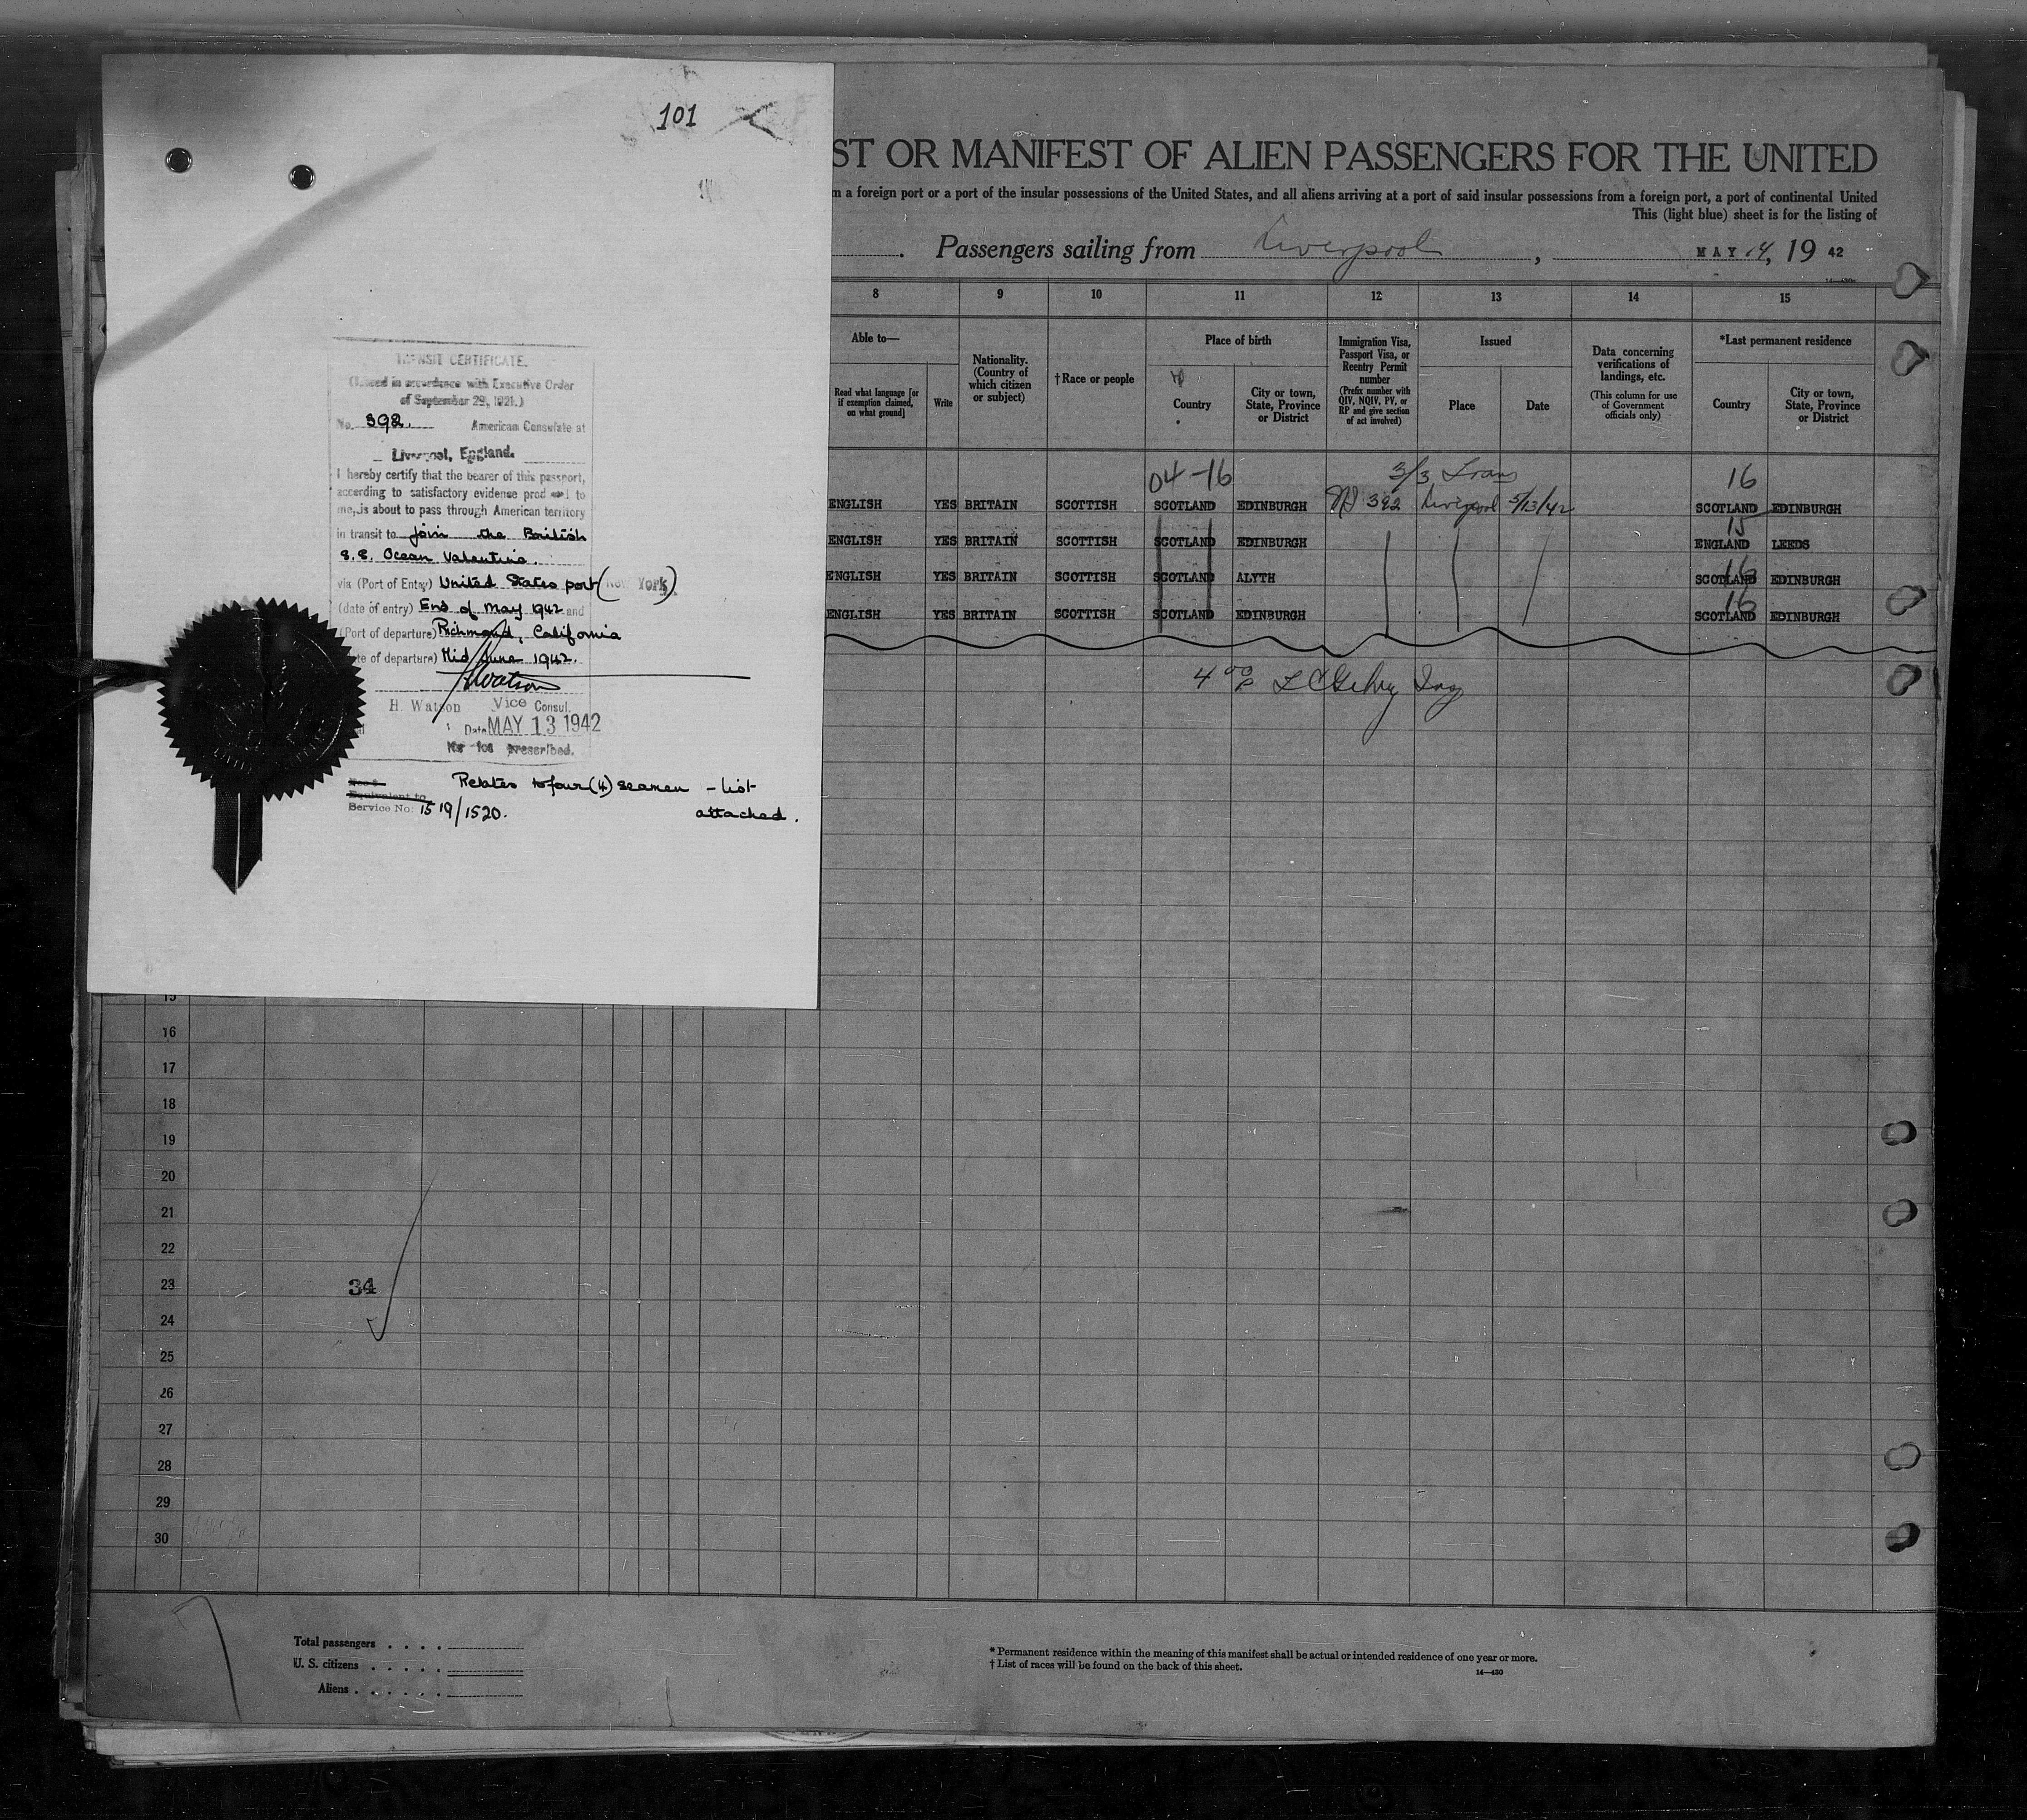 101
TRANSIT CERTIFICATE.
(Issued in accordance with Executive Order
of September 29, 1921.)
No. 392. American Consulate at
Liverpool, England.
I hereby certify that the bearer of this passport,
according to satisfactory evidence produced to
me, is about to pass through American territory
in transit to join the British
s.s. Ocean Valentine.
via (Port of Entry) United States port (New York)
(date of entry) End of May 1942 and
(Port of departure) Richmond, California
(date of departure) Mid June 1942.
H Watson
H. Watson Vice Consul.
Date MAY 13 1942
No fee prescribed.
Relates to four (4) seamen - list
attached.
Equivalent to
Service No: 1519/1520.
ST OR MANIFEST OF ALIEN PASSENGERS FOR THE UNITED
m a foreign port or a port of the insular possessions of the United States, and all aliens arriving at a port of said insular possessions from a foreign port, a port of continental United
This (light blue) sheet is for the listing of
. Passengers sailing from Liverpool, MAY 14, 19 42
14—430
8 9 10 11 12 13 14 15
Able to—
Read what language [or if exemption claimed, on what ground]
Write
Nationality. (Country of which citizen or subject)
†Race or people
Place of birth
Country
City or town, State, Province or District
Immigration Visa, Passport Visa, or Reentry Permit number
(Prefix number with QIV, NQIV, PV, or RP and give section of act involved)
Issued
Place
Date
Data concerning verifications of landings, etc.
(This column for use of Government officials only)
*Last permanent residence
Country
City or town, State, Province or District
04-16 3/3 Trans 16
ENGLISH YES BRITAIN SCOTTISH SCOTLAND EDINBURGH 392 Liverpool 5/13/42 SCOTLAND EDINBURGH
15
ENGLISH YES BRITAIN SCOTTISH SCOTLAND EDINBURGH ENGLAND LEEDS
16
ENGLISH YES BRITAIN SCOTTISH SCOTLAND ALYTH SCOTLAND EDINBURGH
16
ENGLISH YES BRITAIN SCOTTISH SCOTLAND EDINBURGH SCOTLAND EDINBURGH
15
16
17
18
19
20
21
22
23
34
24
25
26
27
28
29
30
Total passengers . . . .
U. S. citizens . . . . .
Aliens . . . . . .
* Permanent residence within the meaning of this manifest shall be actual or intended residence of one year or more.
† List of races will be found on the back of this sheet.
14—430